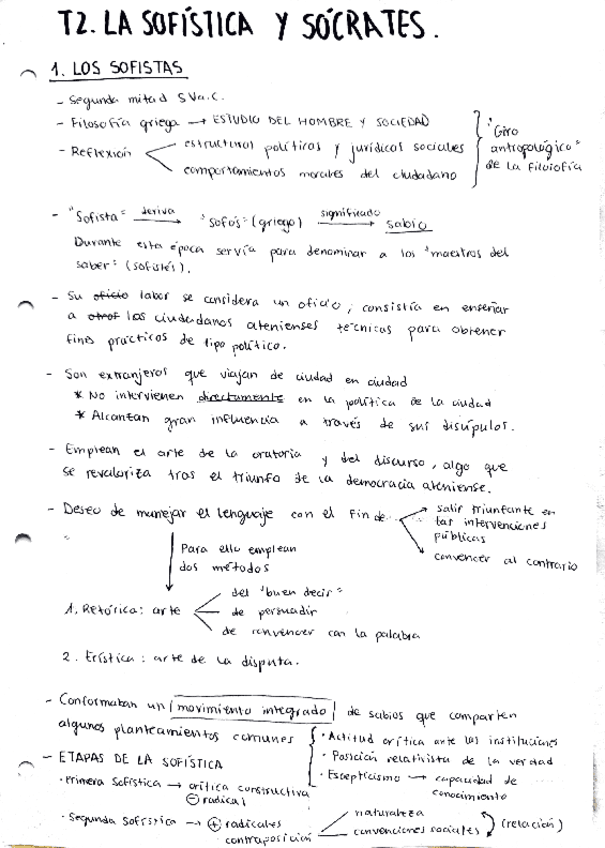 T2. LA SOFÍSTICA Y SÓCRATES.
1. LOS SOFISTAS
- Segunda mitad S V a.C.
- Filosofía griega → ESTUDIO DEL HOMBRE Y SOCIEDAD
- Reflexión
estructuras políticas y jurídicas sociales
comportamientos morales del ciudadano
"Giro
antropológico"
de la filosofía
- "Sofista" deriva → "sofós" (griego) significado → sabio
Durante esta época servía para denominar a los "maestros del
saber" (sofistés).
- Su oficio labor se considera un oficio; consistía en enseñar
a otrof los ciudadanos atenienses técnicas para obtener
fines prácticos de tipo político.
- Son extranjeros que viajan de ciudad en ciudad
* No intervienen directamente en la política de la ciudad
* Alcanzan gran influencia a través de sus discípulos.
- Emplean el arte de la oratoria y del discurso, algo que
se revaloriza tras el triunfo de la democracia ateniense.
- Deseo de manejar el lenguaje con el fin de
salir triunfante en
las intervenciones
públicas
convencer al contrario
Para ello emplean
dos métodos
1. Retórica: arte
del "buen decir"
de persuadir
de convencer con la palabra
2. Erística: arte de la disputa.
- Conformaban un movimiento integrado de sabios que comparten
algunos planteamientos comunes
· Actitud crítica ante las instituciones
· Posición relativista de la verdad
· Escepticismo → capacidad de
conocimiento
- ETAPAS DE LA SOFÍSTICA
· Primera Sofística → crítica constructiva
⊖ radical
· Segunda Sofística → ⊕ radicales
contraposición
naturaleza
convenciones sociales
(relación)